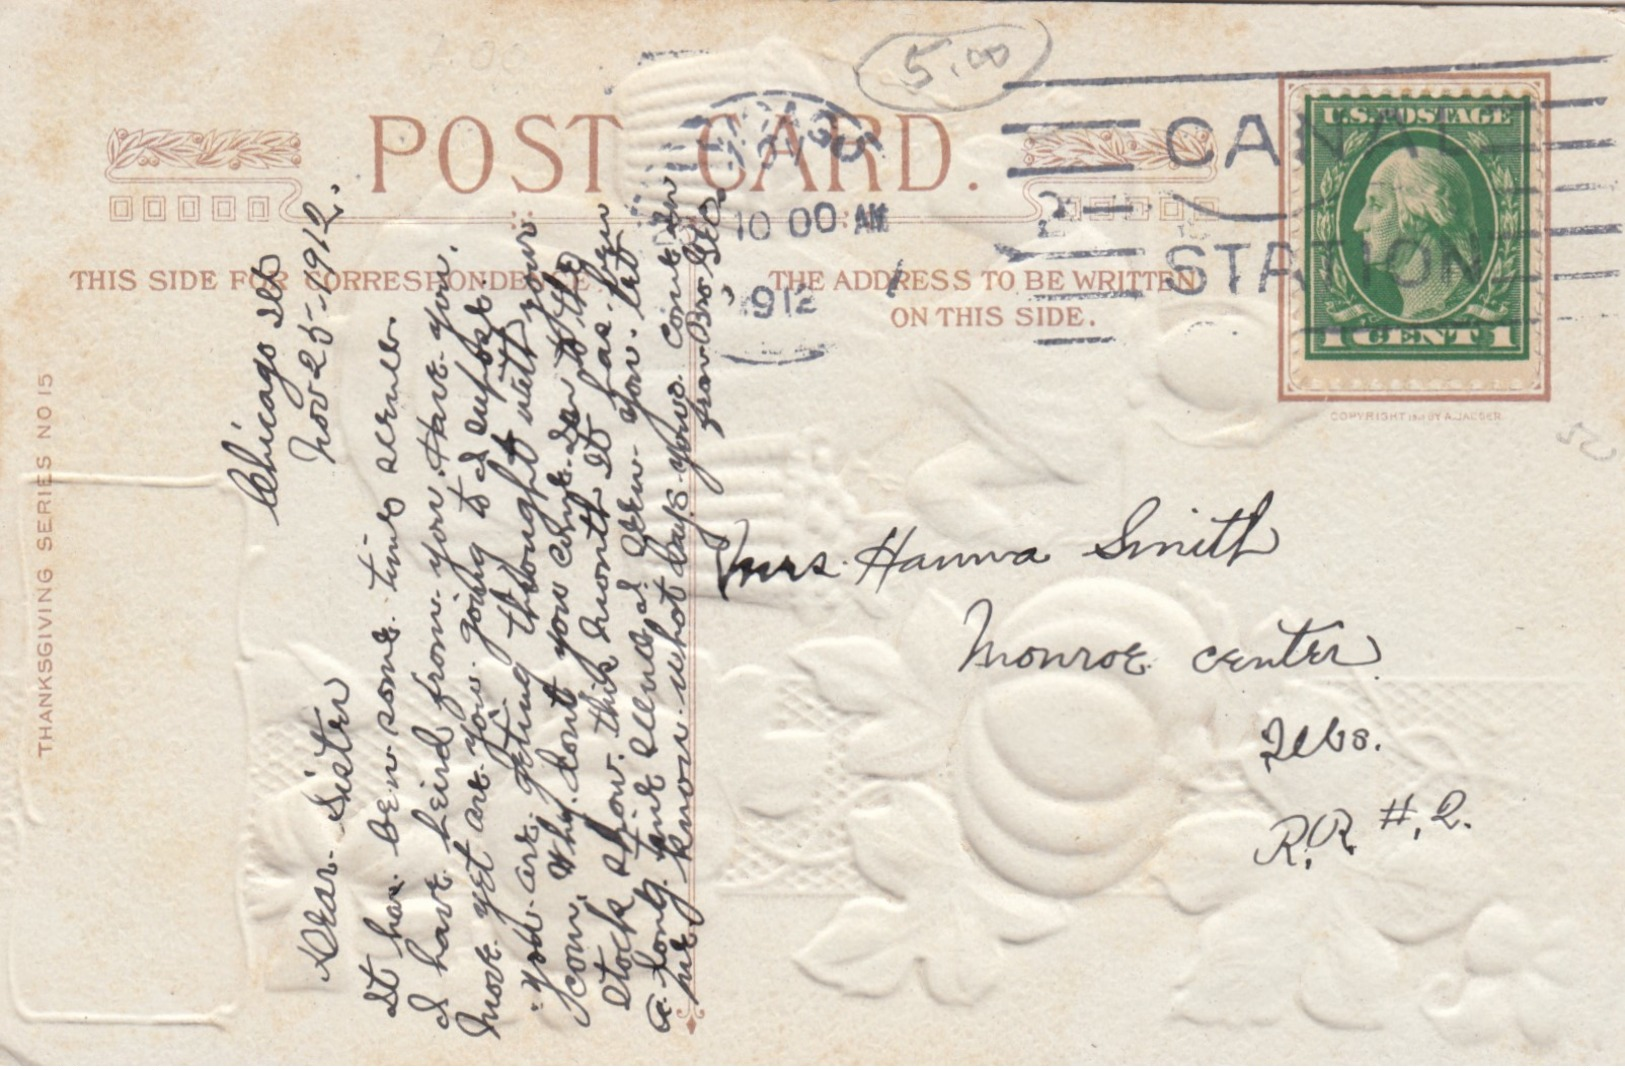 5.00
POST CARD.
CHICAGO
NOV
10 00 AM
1912
CANAL
STATION
2
U.S. POSTAGE
1 CENT 1
THIS SIDE FOR CORRESPONDENCE.
THE ADDRESS TO BE WRITTEN
ON THIS SIDE.
COPYRIGHT BY A. JAEGER.
THANKSGIVING SERIES NO 15
Chicago Ill
Nov 25-1912.
Dear Sister
It has ben some time sence
I have heird from you. Have you
move yet are you going to I supose.
you are geting thought with your
corn. Why dont you come in to the
stock show this month it has ben
a long time sence I seen you. let
me know what day your comeing
from Bro. Geo.
Mrs. Hanna Smith
Monroe center
Ills.
R.R. #.2.